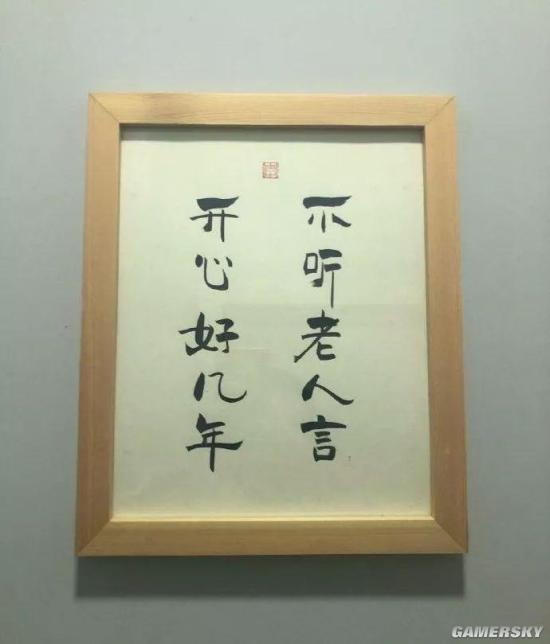 不听老人言
开心好几年
GAMERSKY